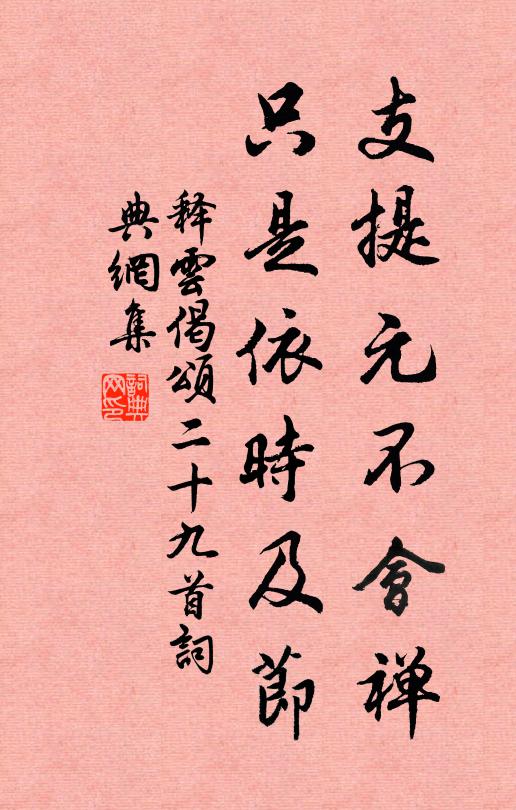 支提元不會禅
只是依時及莭
释雲偈頌二十九首詞
典網集
詞典网印